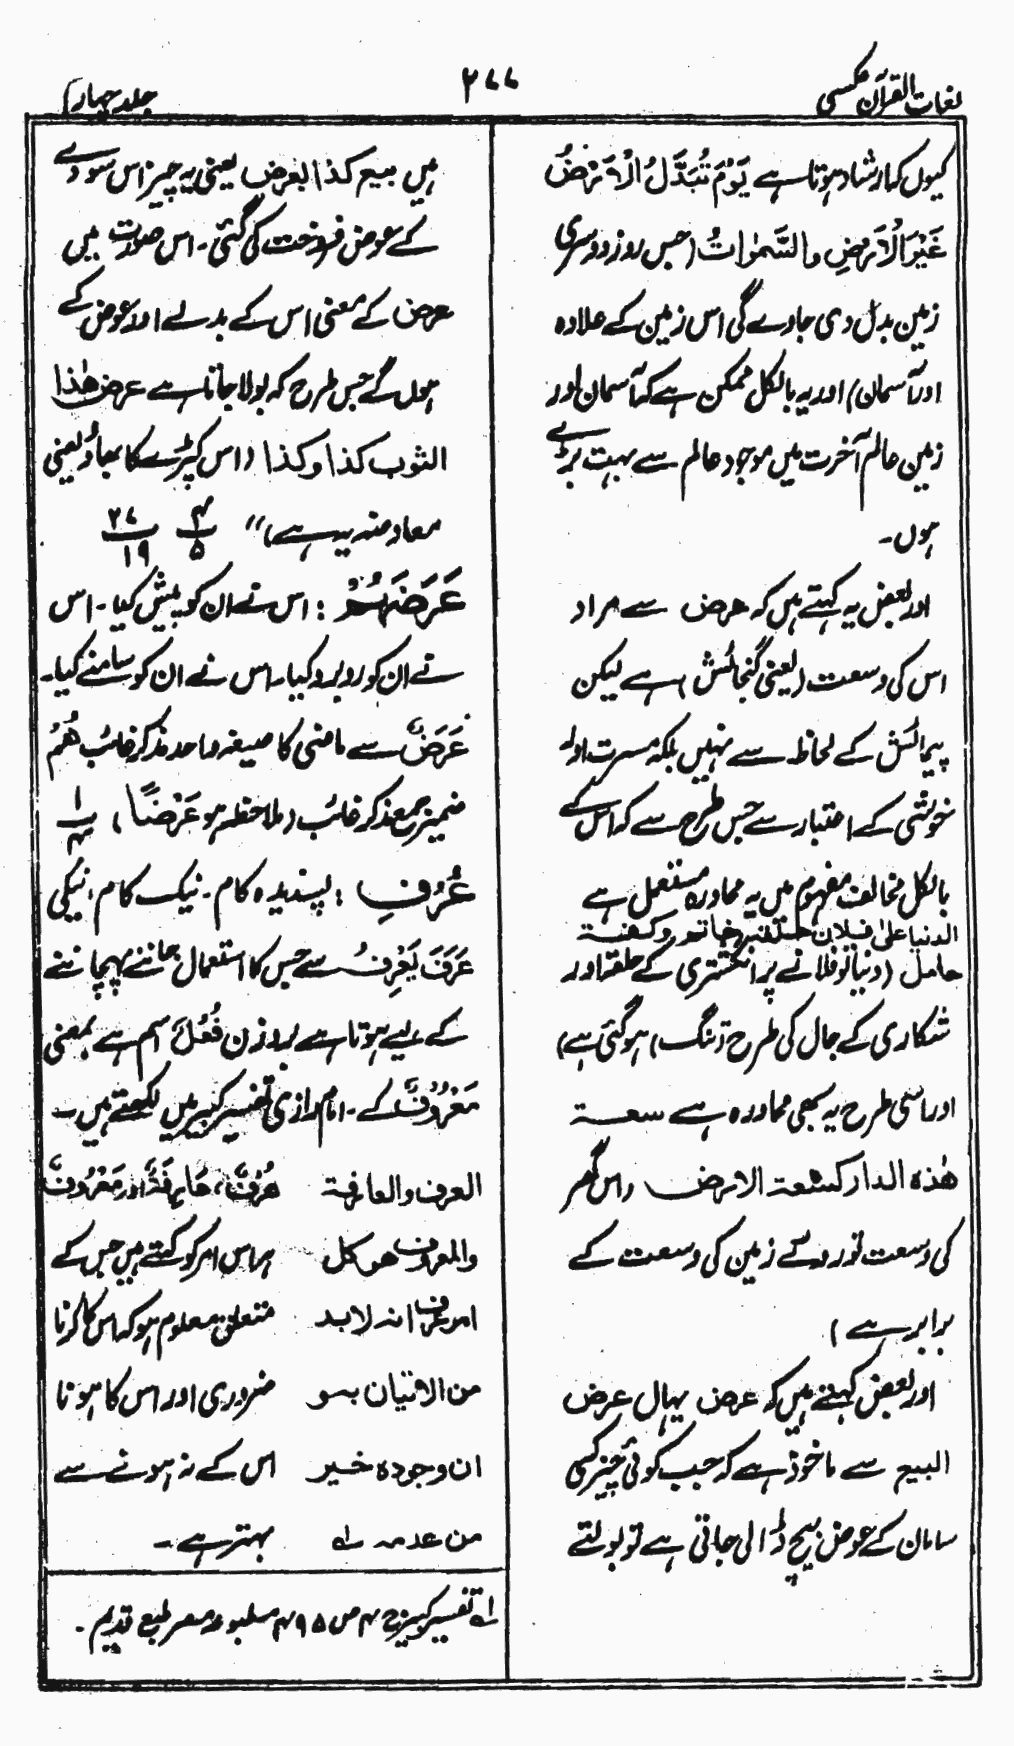 لغات القرآن عکسی
۲۷۷
جلد چہارم
کیوں کہ ارشاد ہوتا ہے یَوْمَ تُبَدَّلُ الْاَرْضُ
غَیْرَ الْاَرْضِ والسَّمٰوَاتُ (جس روز دوسری
زمین بدل دی جاوے گی اس زمین کے علاوہ
اور آسمان) اور یہ بالکل ممکن ہے کہ آسمان اور
زمین عالم آخرت میں موجود عالم سے بہت بڑے
ہوں۔
اور بعض یہ کہتے ہیں کہ عرض سے مراد
اس کی وسعت (یعنی گنجائش) ہے لیکن
پیمائش کے لحاظ سے نہیں بلکہ مسرت اور
خوشی کے اعتبار سے جس طرح سے کہ اس کے
بالکل مخالف مفہوم میں یہ محاورہ مستعمل ہے
الدنیا علیٰ فلان حلقۃ خاتم وکفۃ
حابل (دنیا تو فلانے پر انگشتری کے حلقہ اور
شکاری کے جال کی طرح تنگ ہو گئی ہے)
اور اسی طرح یہ بھی محاورہ ہے سعۃ
ھٰذہ الدار کسعۃ الارض (اس گھر
کی وسعت تو روئے زمین کی وسعت کے
برابر ہے)
اور بعض کہتے ہیں کہ عرض یہاں عرض
البیع سے ماخوذ ہے کہ جب کوئی چیز کسی
سامان کے عوض بیچ ڈالی جاتی ہے تو بولتے
ہیں بیع کذا بعرض یعنی یہ چیز اس سودے
کے عوض فروخت کی گئی۔ اس صورت میں
عرض کے معنی اس کے بدلے اور عوض کے
ہوں گے جس طرح کہ بولا جاتا ہے عرض ھٰذا
الثوب کذا وکذا (اس کپڑے کا بھاؤ یعنی
معاوضہ یہ ہے)" ۴/۵ ۲۷/۱۹
عَرَضَہُمْ: اس نے ان کو پیش کیا۔ اس
نے ان کو روبرو کیا۔ اس نے ان کو سامنے کیا۔
عَرَضٌ سے ماضی کا صیغہ واحد مذکر غائب ھُمْ
ضمیر جمع مذکر غائب (ملاحظہ ہو عَرْضًا) ۱/۴
عُرْفِ: پسندیدہ کام۔ نیک کام، نیکی
عَرَفَ یَعْرِفُ سے جس کا استعمال جاننے پہچاننے
کے لیے ہوتا ہے بروزن فُعْلٌ اسم ہے بمعنی
مَعْرُوْفٌ کے۔ امام رازی تفسیر کبیر میں لکھتے ہیں۔
العرف والعارفۃ عُرْفٌ، عَارِفَۃٌ اور مَعْرُوْفٌ
والمعروف ھو کل ہر اس امر کو کہتے ہیں جس کے
امر عرف انہ لا بد متعلق معلوم ہو کہ اس کا کرنا
من الاتیان بہ و ضروری اور اس کا ہونا
ان وجودہ خیر اس کے نہ ہونے سے
من عدمہ ؎۱ بہتر ہے۔
؎۱ تفسیر کبیر ج ۴ ص ۴۹۵ مطبوعہ مصر طبع قدیم۔